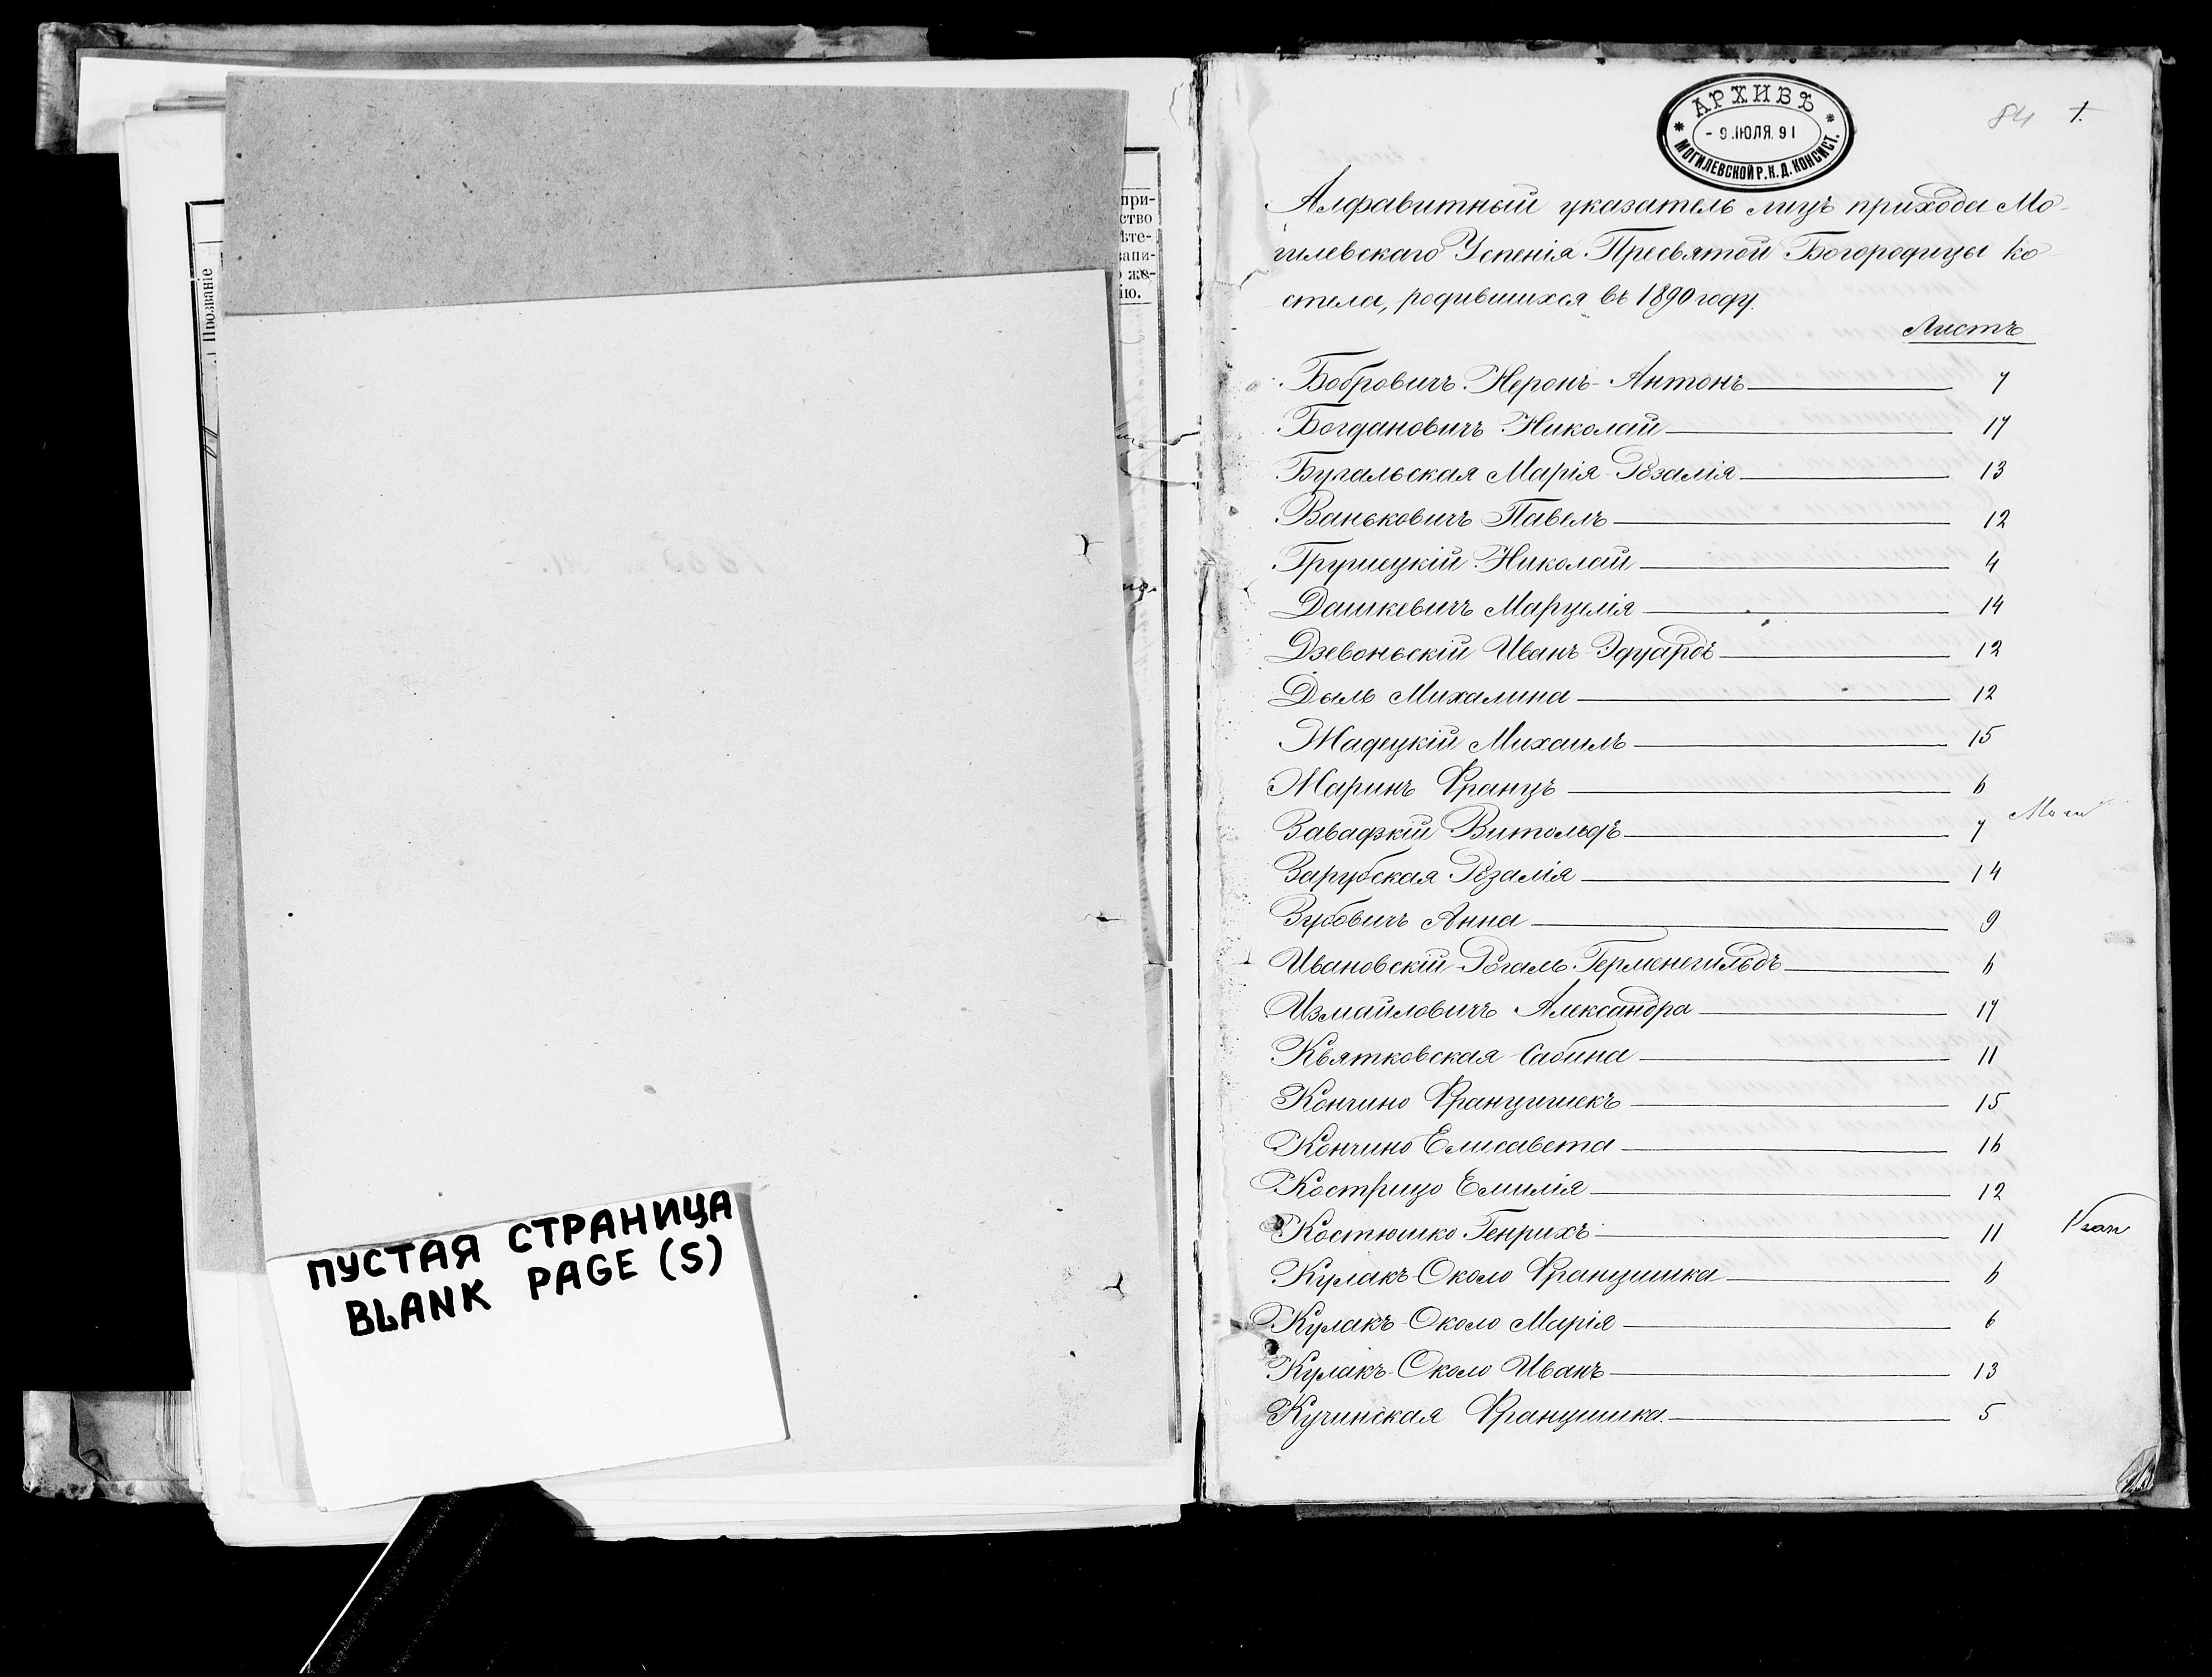 при-
ство
ѣте-
запи-
о же-
ію.
Прозваніе
ПУСТАЯ СТРАНИЦА
BLANK PAGE (S)
АРХИВЪ
9. ІЮЛЯ. 91
МОГИЛЕВСКОЙ Р. К. Д. КОНСИСТ.
84 1.
Алфавитный указатель лицъ прихода Мо-
гилевскаго Успенія Пресвятой Богородицы ко
стела, родившихся въ 1890 году.
Листъ
Бобровичъ Неронъ-Антонъ 7
Богдановичъ Николай 17
Бугальская Марія-Розалія 13
Ваньковичъ Павелъ 12
Грушецкій Николай 4
Дашкевичъ Марцелія 14
Дзевоньскій Иванъ-Эдуардъ 12
Дыль Михалина 12
Жадецкій Михаилъ 15
Жаринъ Францъ 6
Завадзкій Витольдъ 7
Зарубская Розалія 14
Зубовичъ Анна 9
Ивановскій-Рогаль Герменегильдъ 6
Измайловичъ Александра 17
Квятковская Сабина 11
Кончино Францишекъ 15
Кончино Елисавета 16
Кострицо Емилія 12
Костюшко Генрихъ 11
Кулакъ-Около Францишка 6
Кулакъ-Около Марія 6
Кулакъ-Около Иванъ 13
Кучинская Францишка 5